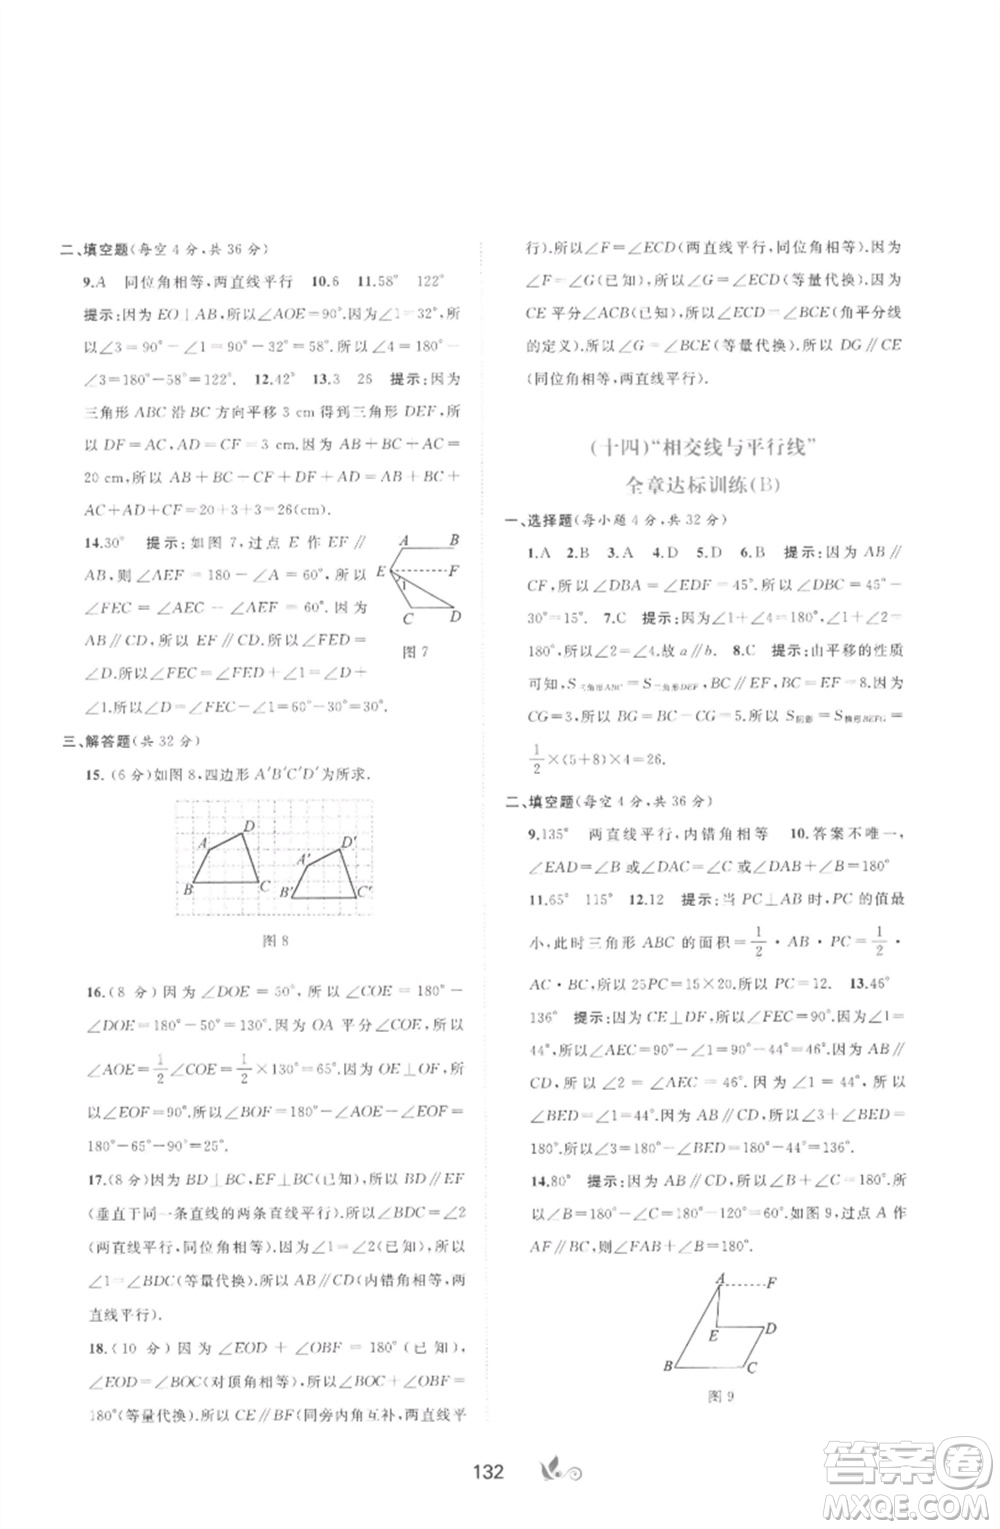 二、填空题(每空 4 分,共 36 分)
9.A 同位角相等,两直线平行 10.6 11.58° 122°
提示:因为 EO⊥AB,所以∠AOE=90°.因为∠1=32°,所
以∠3=90°-∠1=90°-32°=58°.所以∠4=180°-
∠3=180°-58°=122°. 12.42° 13.3 26 提示:因为
三角形 ABC 沿 BC 方向平移 3 cm 得到三角形 DEF,所
以 DF=AC,AD=CF=3 cm.因为 AB+BC+AC=
20 cm,所以 AB+BC+CF+DF+AD=AB+BC+
AC+CF+AD=20+3+3=26(cm).
14.30° 提示:如图 7,过点 E 作 EF∥
AB,则∠AEF=180-∠A=60°,所以
∠FEC=∠AEC-∠AEF=60°.因为
AB∥CD,所以 EF∥CD.所以∠1=
∠D.所以∠FEC=∠FED+∠D=
∠1.所以∠D=∠FEC=30°.
A B
E F
1
C D
图 7
三、解答题(共 32 分)
15.(6 分)如图 8,四边形 A′B′C′D′为所求.
D
A A′ D′
B C B′ C′
图 8
16.(8 分)因为∠DOE=50°,所以∠COE=180°-
∠DOE=180°-50°=130°.因为 OA 平分∠COE,所以
∠AOE=1/2∠COE=1/2×130°=65°.因为 OE⊥OF,所
以∠EOF=90°.所以∠BOF=180°-∠AOE-∠EOF=
180°-65°-90°=25°.
17.(8 分)因为 BD⊥BC,EF⊥BC(已知),所以 BD∥EF
(垂直于同一条直线的两条直线平行).所以∠BDC=∠2
(两直线平行,同位角相等).因为∠1=∠2(已知),所以
∠1=∠BDC(等量代换).所以 AB∥CD(内错角相等,两
直线平行).
18.(10 分)因为∠EOD+∠OBF=180°(已知),
∠EOD=∠BOC(对顶角相等),所以∠BOC+∠OBF=
180°(等量代换).所以 CE∥BF(同旁内角互补,两直线平
行).所以∠F=∠ECD(两直线平行,同位角相等).因为
∠F=∠G(已知),所以∠G=∠ECD(等量代换).因为
CE 平分∠ACB(已知),所以∠ECD=∠BCE(角平分线
的定义).所以∠G=∠BCE(等量代换).所以 DG∥CE
(同位角相等,两直线平行).
(十四)“相交线与平行线”
全章达标训练(B)
一、选择题(每小题 4 分,共 32 分)
1.A 2.B 3.A 4.D 5.D 6.B 提示:因为 AB∥
CF,所以∠DBA=∠EDF=45°.所以∠DBC=45°-
30°=15°. 7.C 提示:因为∠1+∠4=180°,∠1+∠2=
180°,所以∠2=∠4.故 a∥b. 8.C 提示:由平移的性质
可知,S三角形ABC=S三角形DEF,BC∥EF,BC=EF=8.因为
CG=3,所以 BG=BC-CG=5.所以 S阴影=S梯形BEFG=
1/2×(5+8)×4=26.
二、填空题(每空 4 分,共 36 分)
9.135° 两直线平行,内错角相等 10.答案不唯一,如
∠EAD=∠B 或∠DAC=∠C 或∠DAB+∠B=180°
11.65° 115° 12.12 提示:当 PC⊥AB 时,PC 的值最
小,此时三角形 ABC 的面积=1/2·AB·PC=1/2·
AC·BC,所以 25PC=15×20.所以 PC=12. 13.46°
136° 提示:因为 CE⊥DF,所以∠CED=90°.因为∠1=
44°,所以∠AEC=90°-∠1=90°-44°=46°.因为 AB∥
CD,所以∠2=∠AEC=46°.因为∠1=44°,所以
∠BED=∠1=44°.因为 AB∥CD,所以∠3+∠BED=
180°.所以∠3=180°-∠BED=180°-44°=136°.
14.80° 提示:因为 DE∥BC,所以∠C+∠D=180°.所
以∠C=∠B=180°-∠D=180°-120°=60°.如图 9,过点 A 作
AF∥BC,则∠FAB+∠B=180°.
A F
E D
B C
图 9
132
答案圈
MXQE.COM